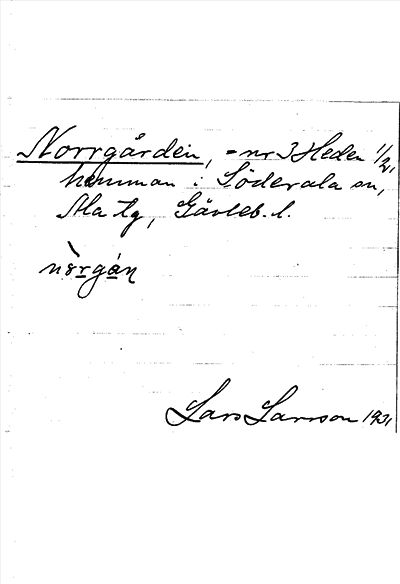 Norrgården, = nr 3 Heden 1/2,
hemman i Söderala sn,
Ala tg, Gävleb. l.
nòrgán
Lars Larsson 1931